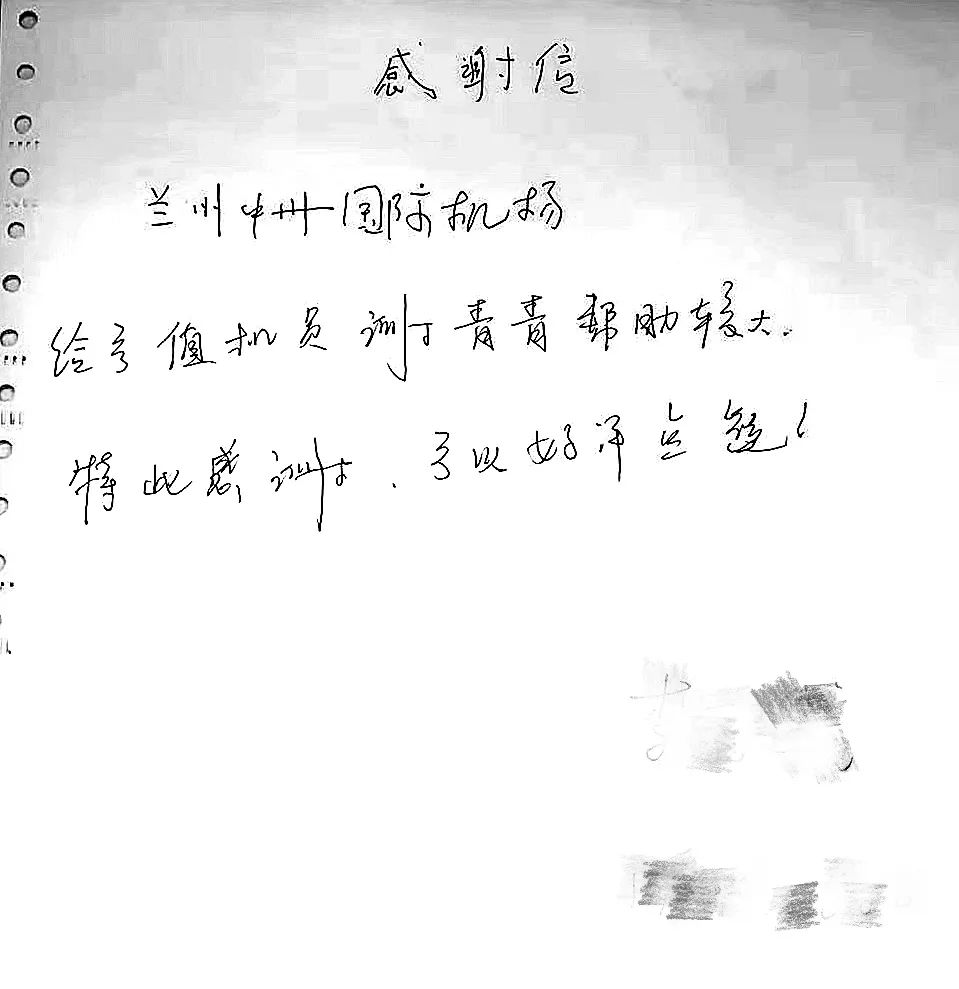 感谢信
兰州中川国际机场
给予值机员谢青青帮助较大.
特此感谢.予以好评点赞!